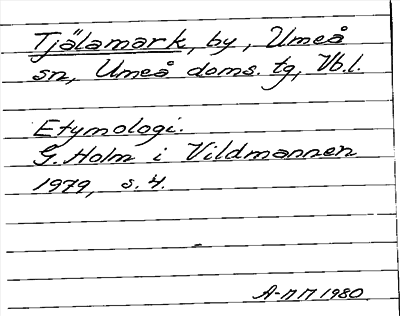 Tjälamark, by, Umeå
sn, Umeå doms. tg, Vb.l.
Etymologi.
G. Holm i Vildmannen
1979, s. 4.
A-NM 1980